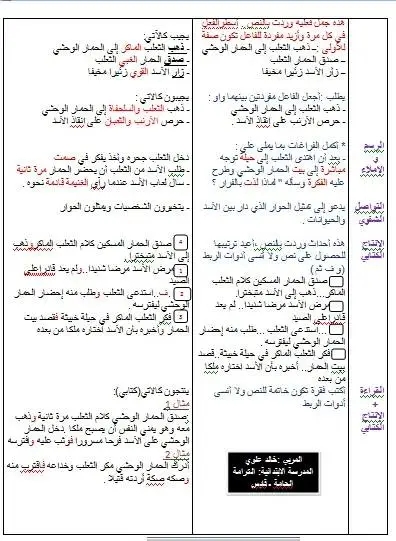 هذه جمل فعلية وردت بالنص. أسطر الفعل
في كل مرة وأزيد مفردة للفاعل تكون صفة
للأولى :ـ ذهب الثعلب إلى الحمار الوحشي
ـ صدق الحمار الثعلب
ـ زأر الأسد زئيرا مخيفا
يطلب :أجعل الفاعل مفردتين بينهما واو :
ـ ذهب الثعلب إلى الحمار الوحشي
ـ حرص الأرنب على إنقاذ الأسد .
يجيب كالآتي:
ـ ذهب الثعلب الماكر إلى الحمار الوحشي
ـ صدق الحمار الغبي الثعلب
ـ زأر الأسد القوي زئيرا مخيفا
يجيبون كالاتي :
ـ ذهب الثعلب والسلحفاة إلى الحمار الوحشي
ـ حرص الأرنب والثعبان على إنقاذ الأسد
الرسم
و
الإملاء
* أكمل الفراغات بما يملى علي :
ـ بعد أن اهتدى الثعلب إلى حيلة توجه
مباشرة إلى بيت الحمار الوحشي وطرح
عليه الفكرة وسأله " لماذا لذت بالفرار ؟
دخل الثعلب جحره وأخذ يفكر في صمت
ـ طلب الأسد من الثعلب أن يحضر الحمار مرة ثانية
ـ سال لعاب الأسد عندما رأى الغنيمة قادمة نحوه .
التواصل
الشفوي
يدعو إلى تمثيل الحوار الذي دار بين الأسد
والحيوانات .
ـ يتخيرون الشخصيات ويمثلون الحوار
الإنتاج
الكتابي
هذه أحداث وردت بالنص .أعيد ترتيبها
للحصول على نص ولا أنسى أدوات الربط
( و ف ثم )
صدق الحمار المسكين كلام الثعلب
الماكر...ذهب إلى الأسد متبخترا
مرض الأسد مرضا شديدا.. لم يعد
قادرا على الصيد
...استدعى الثعلب ...طلب منه إحضار
الحمار الوحشي ليفترسه .
فكر الثعلب الماكر في حيلة خبيثة .قصد
بيت الحمار.. أخبره بأن الأسد اختاره ملكا
من بعده
4 صدق الحمار المسكين كلام الثعلب الماكر وذهب
إلى الأسد متبخترا
1 مرض الأسد مرضا شديدا...ولم يعد قادرا على
الصيد
2 .ف..استدعى الثعلب وطلب منه إحضار الحمار
الوحشي ليفترسه .
3 فكر الثعلب الماكر في حيلة خبيثة فقصد بيت
الحمار وأخبره بأن الأسد اختاره ملكا من بعده
القراءة
+
الإنتاج
الكتابي
أكتب فقرة تكون خاتمة للنص ولا أنسى
أدوات الربط
ينتجون كالاتي(كتابي):
مثال 1
صدق الحمار الوحشي كلام الثعلب مرة ثانية وذهب
معه وهو يمني النفس أن يصبح ملكا .دخل الحمار
الوحشي على الأسد فرحا مسرورا فوثب عليه وافترسه
مثال 2
أدرك الحمار الوحشي مكر الثعلب وخداعه فاقترب منه
وصكه صكة أردته قتيلا .
المربي :خالد علوي
المدرسة الابتدائية: الكرامة
الحامة - قابس